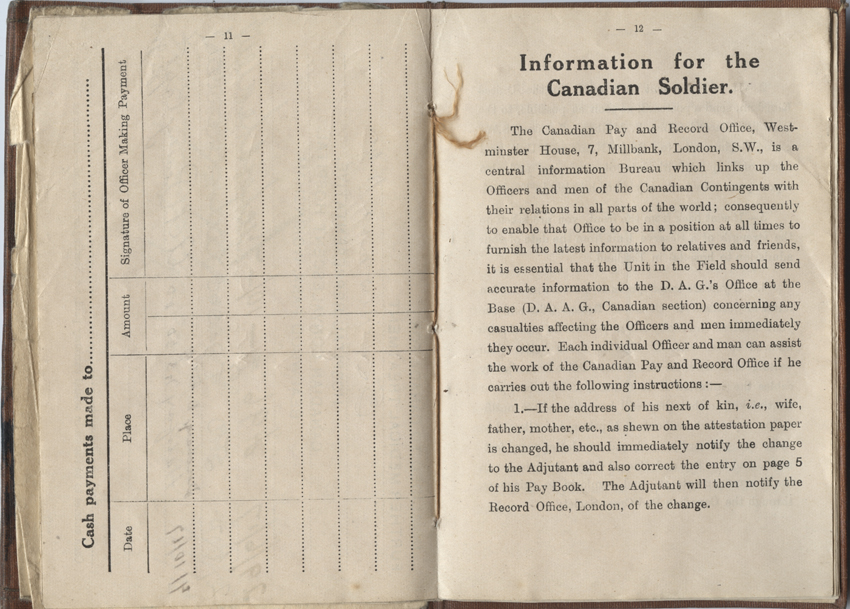 — 11 —
Cash payments made to
Date Place Amount Signature of Officer Making Payment
— 12 —
Information for the
Canadian Soldier.
The Canadian Pay and Record Office, West-
minster House, 7, Millbank, London, S.W., is a
central information Bureau which links up the
Officers and men of the Canadian Contingents with
their relations in all parts of the world; consequently
to enable that Office to be in a position at all times to
furnish the latest information to relatives and friends,
it is essential that the Unit in the Field should send
accurate information to the D. A. G.'s Office at the
Base (D. A. A. G., Canadian section) concerning any
casualties affecting the Officers and men immediately
they occur. Each individual Officer and man can assist
the work of the Canadian Pay and Record Office if he
carries out the following instructions :—
1.—If the address of his next of kin, i.e., wife,
father, mother, etc., as shewn on the attestation paper
is changed, he should immediately notify the change
to the Adjutant and also correct the entry on page 5
of his Pay Book. The Adjutant will then notify the
Record Office, London, of the change.